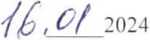 16.01 2024